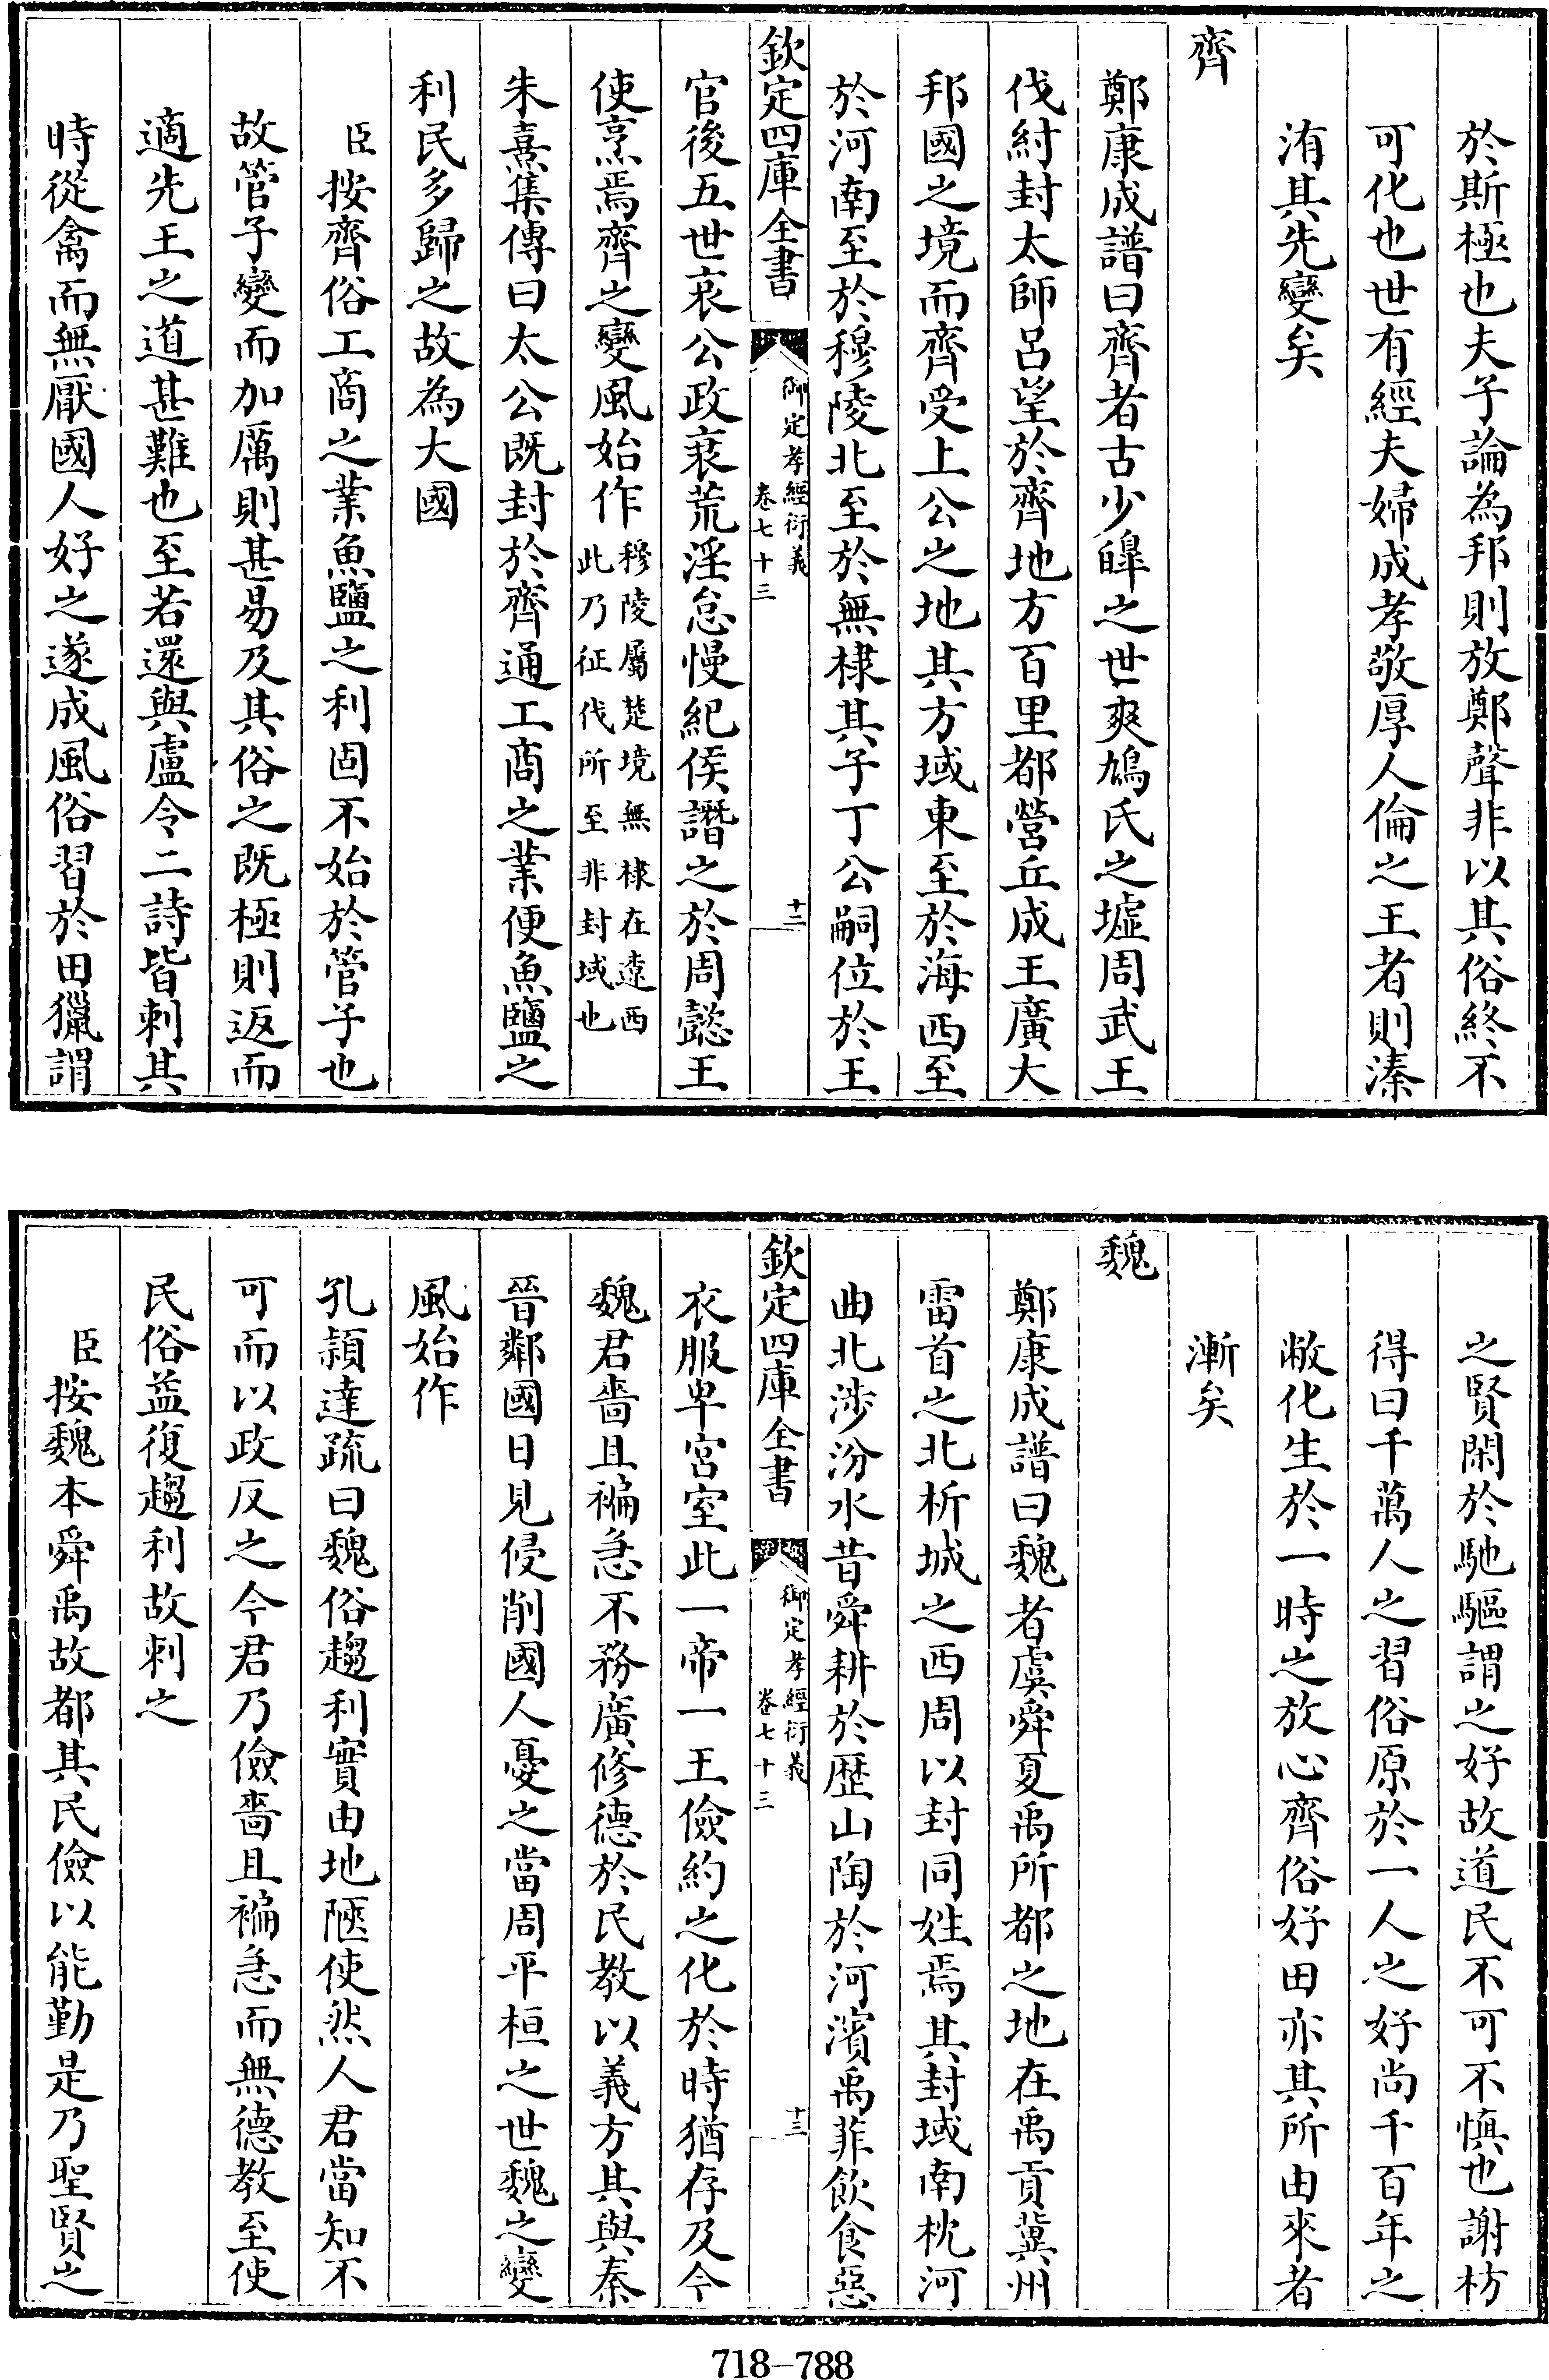 於斯極也夫子論為邦則放鄭聲非以其俗終不
可化也世有經夫婦成孝敬厚人倫之王者則溱
洧其先變矣
齊
鄭康成譜曰齊者古少皥之世爽鳩氏之墟周武王
伐紂封太師呂望於齊地方百里都營丘成王廣大
邦國之境而齊受上公之地其方域東至於海西至
於河南至於穆陵北至於無棣其子丁公嗣位於王
欽定四庫全書
御定孝經衍義
卷七十三
十二
官後五世哀公政衰荒淫怠慢紀侯譖之於周懿王
使烹焉齊之變風始作穆陵屬楚境無棣在遼西
此乃征伐所至非封域也
朱熹集傳曰太公既封於齊通工商之業便魚鹽之
利民多歸之故為大國
臣按齊俗工商之業魚鹽之利固不始於管子也
故管子變而加厲則甚易及其俗之既極則返而
適先王之道甚難也至若還與盧令二詩皆刺其
時從禽而無厭國人好之遂成風俗習於田獵謂
之賢閑於馳驅謂之好故道民不可不慎也謝枋
得曰千萬人之習俗原於一人之好尚千百年之
敝化生於一時之放心齊俗好田亦其所由來者
漸矣
魏
鄭康成譜曰魏者虞舜夏禹所都之地在禹貢冀州
雷首之北析城之西周以封同姓焉其封域南枕河
曲北涉汾水昔舜耕於歷山陶於河濱禹菲飲食惡
欽定四庫全書
御定孝經衍義
卷七十三
十三
衣服卑宮室此一帝一王儉約之化於時猶存及今
魏君嗇且褊急不務廣修德於民教以義方其與秦
晉鄰國日見侵削國人憂之當周平桓之世魏之變
風始作
孔穎達疏曰魏俗趨利實由地陿使然人君當知不
可而以政反之今君乃儉嗇且褊急而無德教至使
民俗益復趨利故刺之
臣按魏本舜禹故都其民儉以能勤是乃聖賢之
718-788